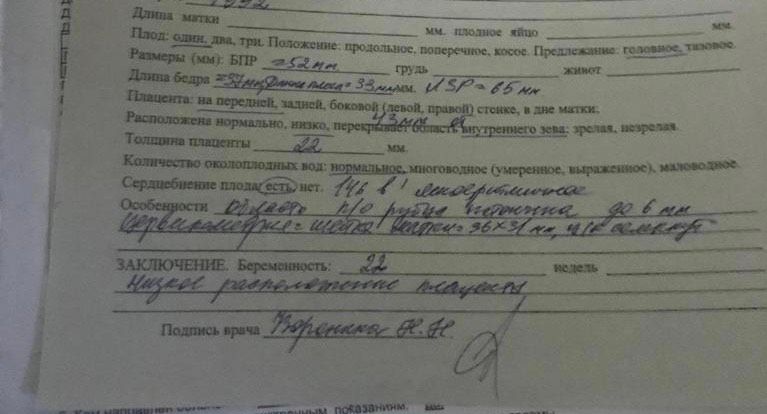 1992
Длина матки мм. плодное яйцо мм.
Плод: один, два, три. Положение: продольное, поперечное, косое. Предлежание: головное, тазовое.
Размеры (мм): БПР =52мм грудь живот
Длина бедра =37мм, плеча=33мм мм. ЛЗР=65мм
Плацента: на передней, задней, боковой (левой, правой) стенке, в дне матки;
43мм от
Расположена нормально, низко, перекрывает область внутреннего зева; зрелая, незрелая.
Толщина плаценты 22 мм.
Количество околоплодных вод: нормальное, многоводное (умеренное, выраженное), маловодное.
Сердцебиение плода (есть) нет. 146 в 1' ясное ритмичное
Особенности Область п/о рубца истончена до 6 мм
Цервикометрия= шейка матки=36х31мм, ц/к сомкнут
ЗАКЛЮЧЕНИЕ. Беременность: 22 недель
Низкое расположение плаценты
Подпись врача Н.Н